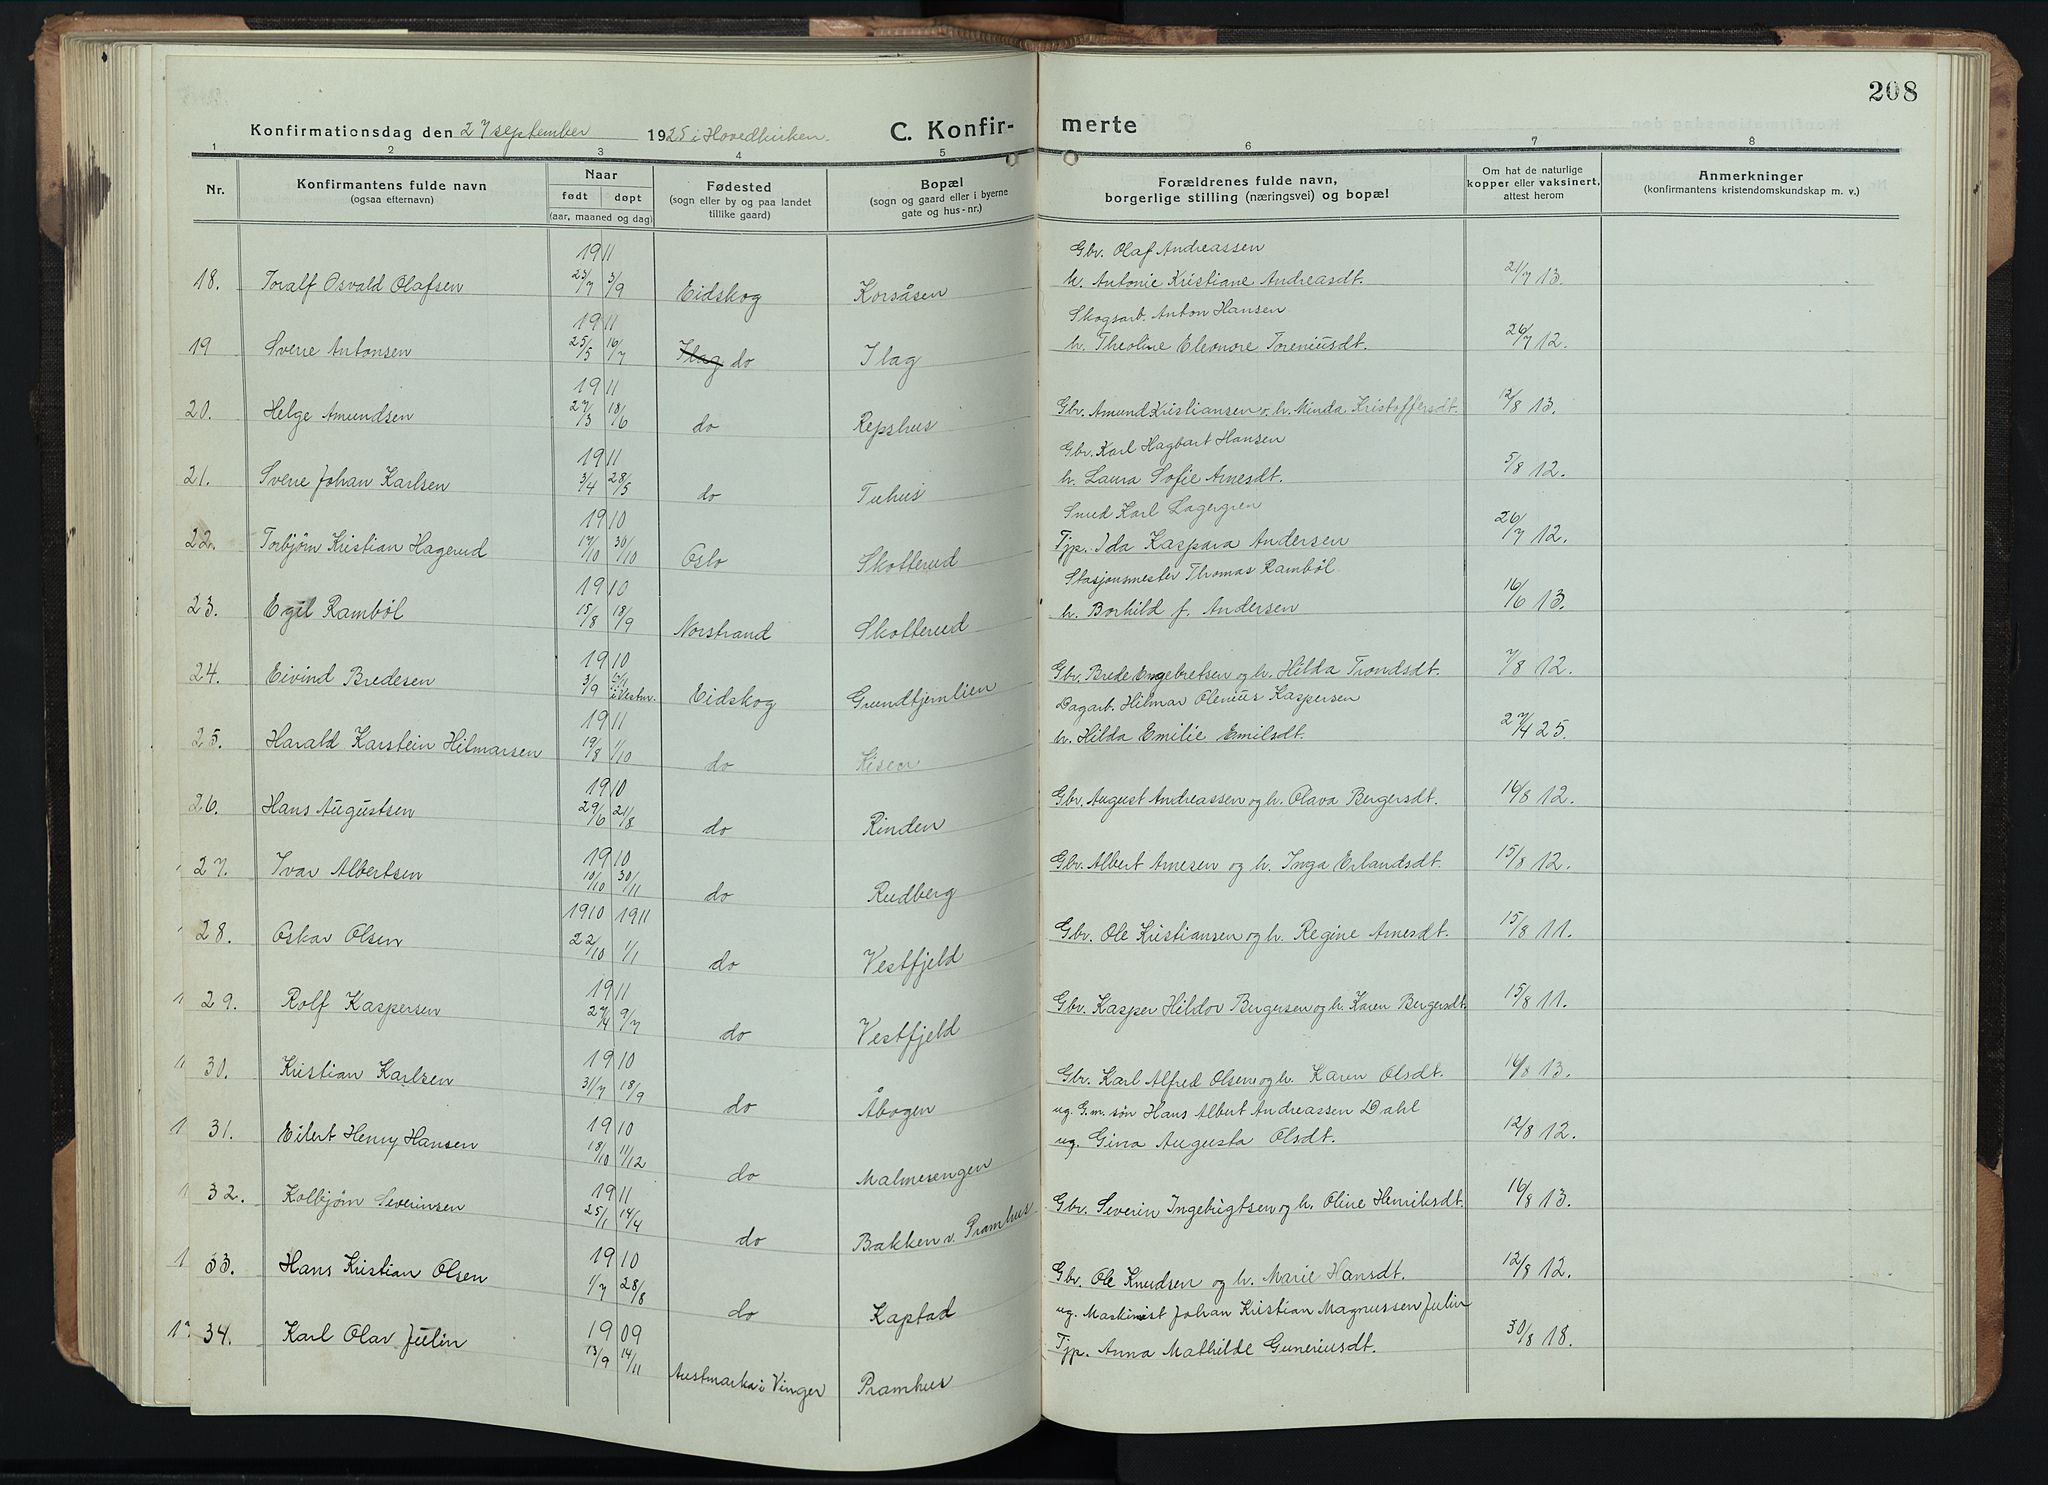 208
Konfirmationsdag den 27 september 1925 i Hovedkirken. C. Konfir- merte
1 2 3 4 5 6 7 8
Nr. Konfirmantens fulde navn (ogsaa efternavn) Naar født døpt (aar, maaned og dag) Fødested (sogn eller by og paa landet tillike gaard) Bopæl (sogn og gaard eller i byerne gate og hus-nr.) Forældrenes fulde navn, borgerlige stilling (næringsvei) og bopæl Om hat de naturlige kopper eller vaksinert, attest herom Anmerkninger (konfirmantens kristendomskundskap m. v.)
1911 Gbr. Olaf Andreassen
18. Toralf Osvald Olafsen 23/7 3/9 Eidskog Korsåsen h. Antonie Kristiane Andreasdt. 21/7 13.
1911 Skogsarb. Anton Hansen
19 Sverre Antonsen 25/5 16/7 do Ilag h. Theoline Eleonore Toreniusdt. 26/7 12.
1911
20. Helge Amundsen 27/3 18/6 do Repshus Gbr. Amund Kristiansen o. h. Minda Kristoffersdt. 12/8 13.
1911 Gbr. Karl Hagbart Hansen
21. Sverre Johan Karlsen 3/4 28/5 do Tuhus h. Laura Sofie Arnesdt. 5/8 12.
1910 Smed Karl Lagergren
22. Torbjørn Kristian Hagerud 17/10 30/10 Oslo Skotterud Tjp. Ida Kaspara Andersen 26/7 12.
1910 Stasjonsmester Thomas Rambøl.
23. Egil Rambøl 15/8 18/9 Norstrand Skotterud h. Borhild f. Andersen 16/6 13.
1910
24. Eivind Bredesen 3/9 i Vestm. Eidskog Grundtjernlien Gbr. Brede Engebretsen og h. Hilda Trondsdt. 7/8 12.
1911 Dagarb. Hilmar Olenius Kaspersen
25. Harald Karstein Hilmarsen 19/8 1/10 do Kisen h. Hilda Emilie Emilsdt. 27/4 25.
1910
26. Hans Augustsen 29/6 21/8 do Rinden Gbr. August Andreassen og h. Olava Bergersdt. 16/8 12.
1910
27. Ivar Albertsen 10/10 30/11 do Rudberg Gbr. Albert Arnesen og h. Inga Erlandsdt. 15/8 12.
1910 1911
28. Oskar Olsen 22/10 1/1 do Vestfjeld Gbr. Ole Kristiansen og h. Regine Arnesdt. 15/8 11.
1911
29. Rolf Kaspersen 27/4 9/7 do Vestfjeld Gbr. Kasper Hildor Bergersen og h. Karen Bergersdt. 15/8 11.
1910
30. Kristian Karlsen 31/7 18/9 do Åbogen Gbr. Karl Alfred Olsen og h. Karen Olsdt. 16/8 13.
1910 ug. G.m. søn Hans Albert Andreassen Dahl
31. Eilert Henry Hansen 18/10 11/12 do Malmesengen ug. Gina Augusta Olsdt. 12/8 12.
1911
32. Kolbjørn Severinsen 25/1 14/4 do Bakken v. Pramhus Gbr. Severin Ingebrigtsen og h. Oline Henriksdt. 16/8 13.
1910
33. Hans Kristian Olsen 1/7 28/8 do Kaptad Gbr. Ole Knudsen og h. Marie Hansdt. 12/8 12.
1909 ug. Maskinist Johan Kristian Magnussen Julin
34. Karl Olav Julin 13/9 14/11 Austmarka i Vinger Pramhus Tjp. Anna Mathilde Guneriusdt. 30/8 18.